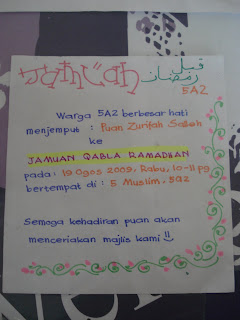 Jemputan
قبل
رمضان
5A2
Warga 5A2 berbesar hati
menjemput : Puan Zurifah Salleh
ke
JAMUAN QABLA RAMADHAN
pada : 19 Ogos 2009, Rabu, 10-11 pg
bertempat di : 5 Muslim, 5a2
Semoga kehadiran puan akan
menceriakan majlis kami !!